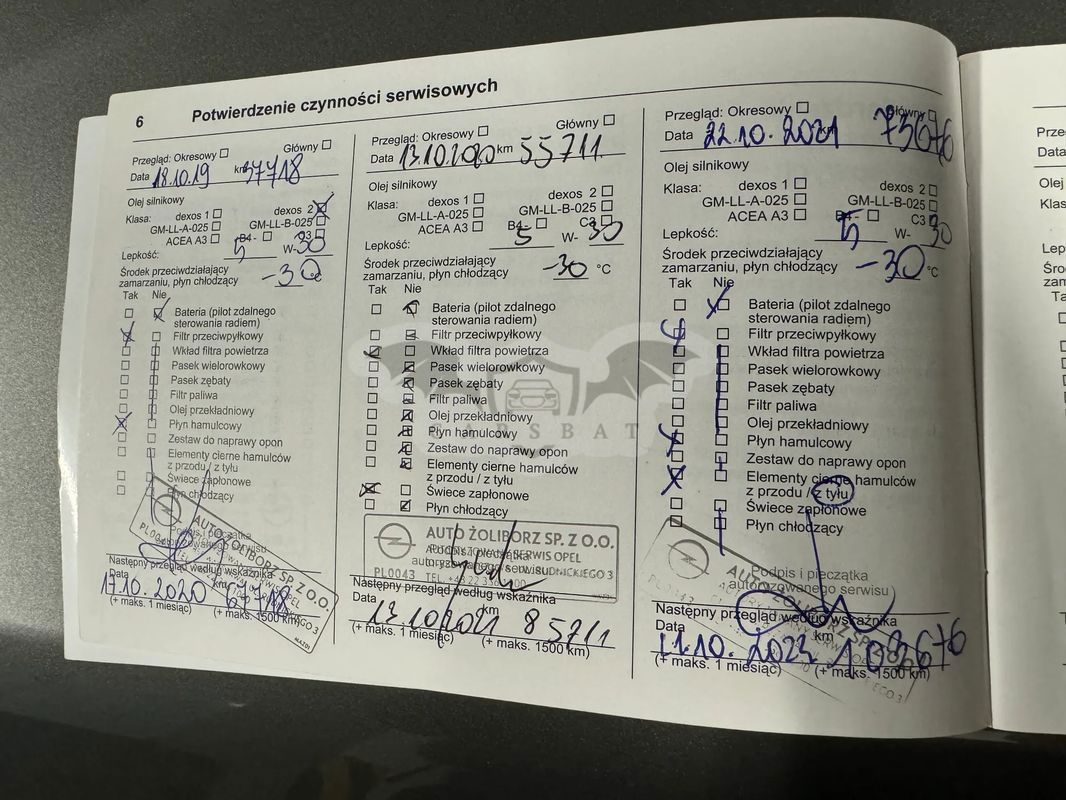 6 Potwierdzenie czynności serwisowych
Przegląd: Okresowy Główny
Data 18.10.19 km 37718
Olej silnikowy
Klasa: dexos 1 dexos 2
GM-LL-A-025 GM-LL-B-025
ACEA A3 B4- C3
Lepkość: 5 W- 30
Środek przeciwdziałający
zamarzaniu, płyn chłodzący -30 °C
Tak Nie
Bateria (pilot zdalnego
sterowania radiem)
Filtr przeciwpyłkowy
Wkład filtra powietrza
Pasek wielorowkowy
Pasek zębaty
Filtr paliwa
Olej przekładniowy
Płyn hamulcowy
Zestaw do naprawy opon
Elementy cierne hamulców
z przodu / z tyłu
Świece zapłonowe
Płyn chłodzący
Podpis i pieczątka
autoryzowanego serwisu
AUTO ŻOLIBORZ SP. Z O.O.
Następny przegląd według wskaźnika
Data 17.10.2020 67718
(+ maks. 1 miesiąc) (+ maks. 1500 km)
Przegląd: Okresowy Główny
Data 13.10.2020 km 55711
Olej silnikowy
Klasa: dexos 1 dexos 2
GM-LL-A-025 GM-LL-B-025
ACEA A3 B4- C3
Lepkość: 5 W- 30
Środek przeciwdziałający
zamarzaniu, płyn chłodzący -30 °C
Tak Nie
Bateria (pilot zdalnego
sterowania radiem)
Filtr przeciwpyłkowy
Wkład filtra powietrza
Pasek wielorowkowy
Pasek zębaty
Filtr paliwa
Olej przekładniowy
Płyn hamulcowy
Zestaw do naprawy opon
Elementy cierne hamulców
z przodu / z tyłu
Świece zapłonowe
Płyn chłodzący
AUTO ŻOLIBORZ SP. Z O.O.
Podpis i pieczątka SERWIS OPEL
autoryzowanego serwisu RUDNICKIEGO 3
PL0043
Następny przegląd według wskaźnika
Data 13.10.2021 km 85711
(+ maks. 1 miesiąc) (+ maks. 1500 km)
Przegląd: Okresowy Główny
Data 22.10.2021 km 73676
Olej silnikowy
Klasa: dexos 1 dexos 2
GM-LL-A-025 GM-LL-B-025
ACEA A3 B4- C3
Lepkość: 5 W- 30
Środek przeciwdziałający
zamarzaniu, płyn chłodzący -30 °C
Tak Nie
Bateria (pilot zdalnego
sterowania radiem)
Filtr przeciwpyłkowy
Wkład filtra powietrza
Pasek wielorowkowy
Pasek zębaty
Filtr paliwa
Olej przekładniowy
Płyn hamulcowy
Zestaw do naprawy opon
Elementy cierne hamulców
z przodu / z tyłu
Świece zapłonowe
Płyn chłodzący
Podpis i pieczątka
autoryzowanego serwisu
Następny przegląd według wskaźnika
Data km 103676
(+ maks. 1 miesiąc) (+ maks. 1500 km)
CARSBAT